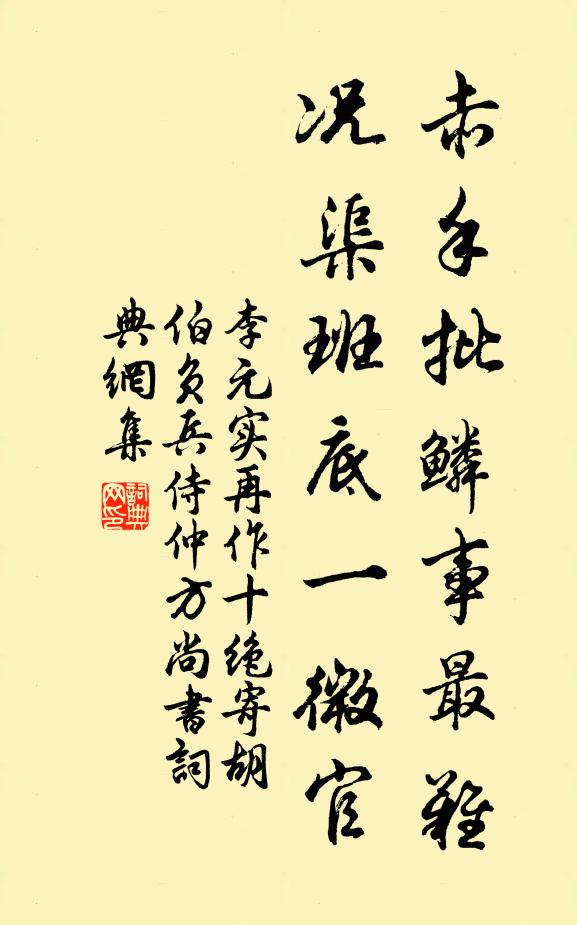 赤手批鳞事最难
况渠班底一微官
李元实再作十绝寄胡
伯负兵侍仲方尚書詞
典網集
詞典
网印